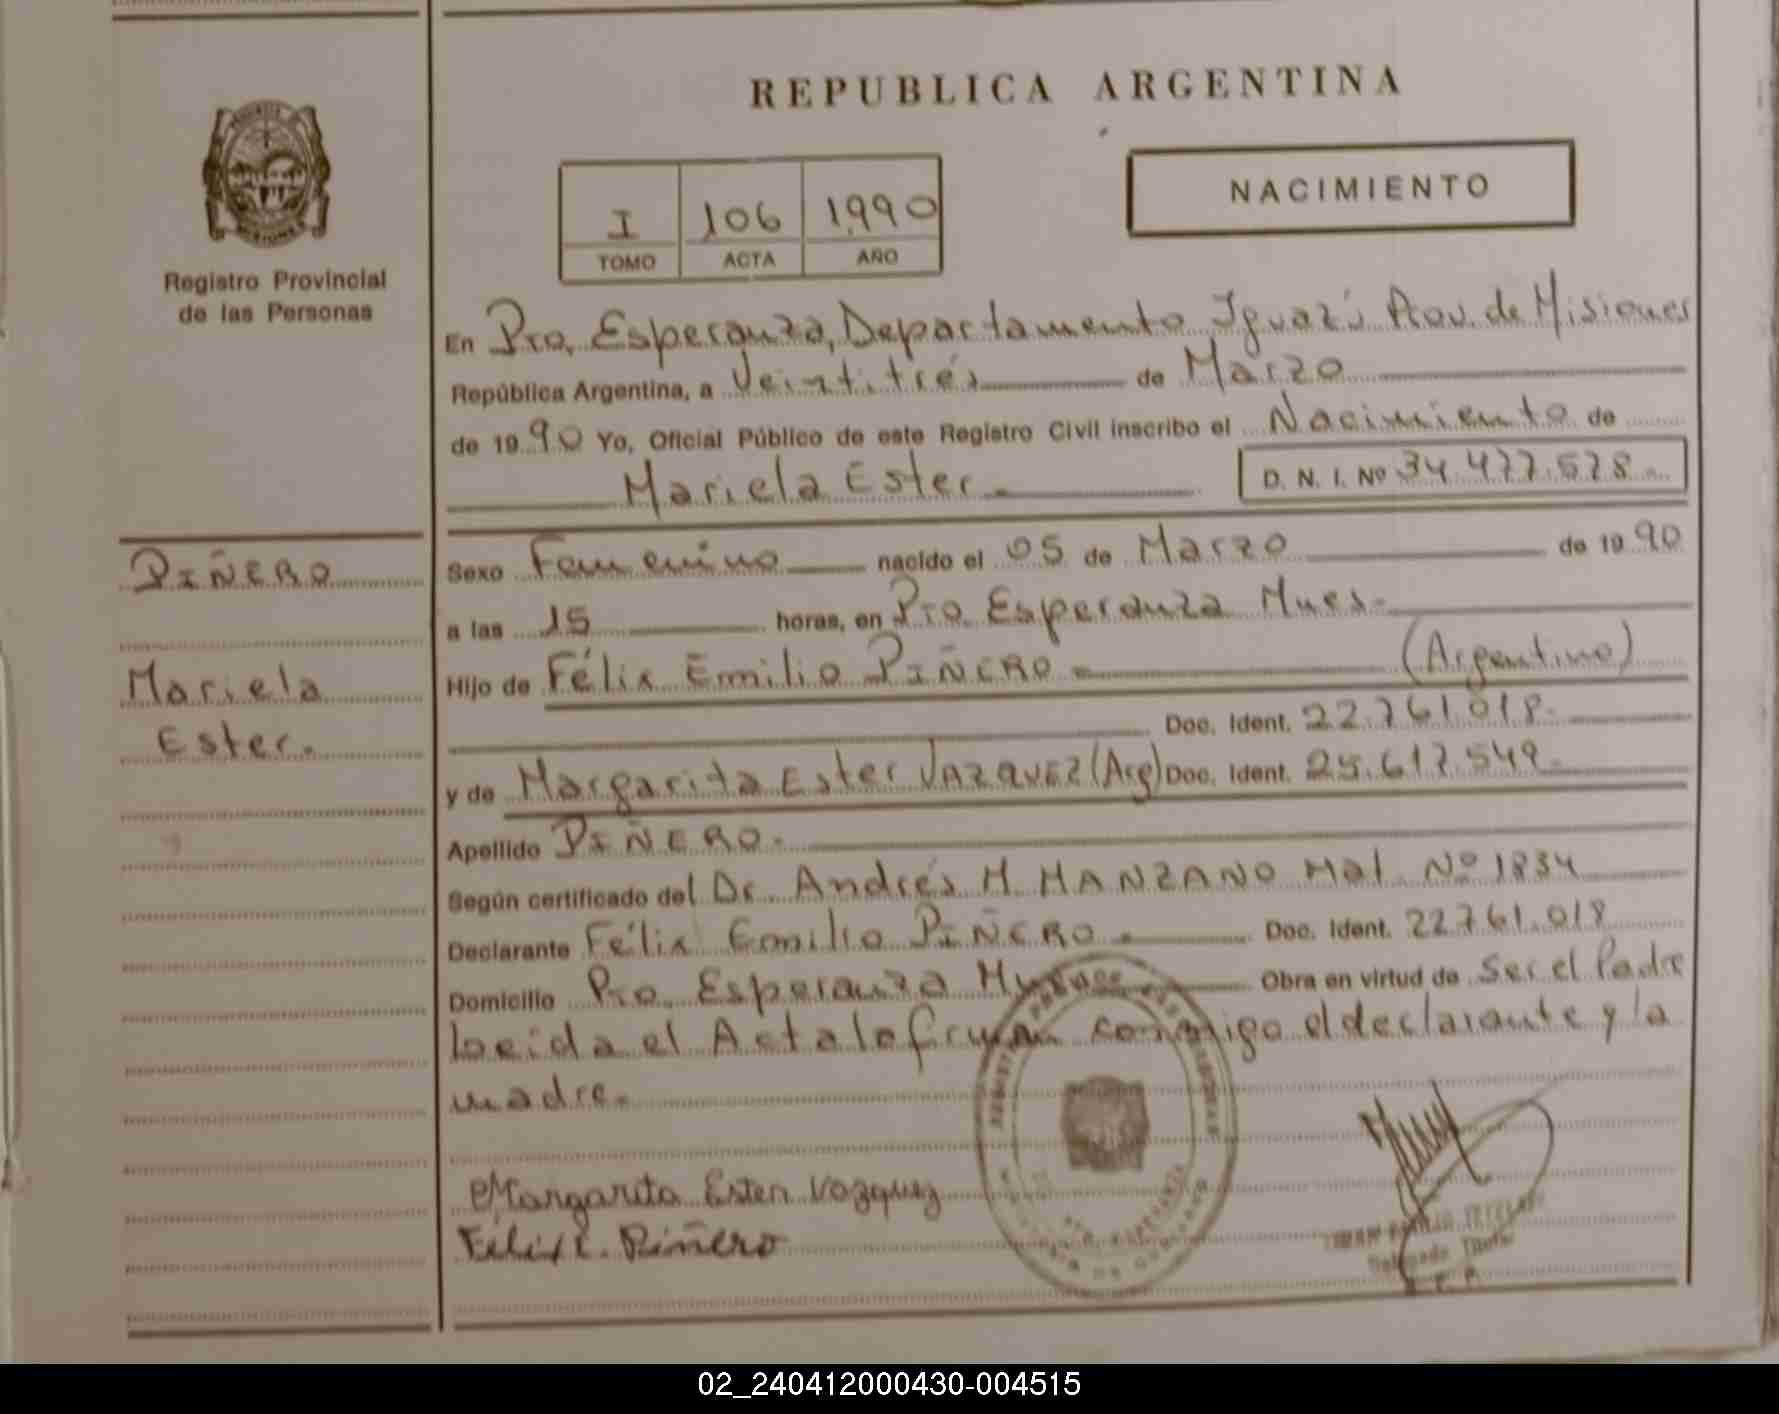 REPUBLICA ARGENTINA
NACIMIENTO
I 106 1990
TOMO ACTA AÑO
Registro Provincial
de las Personas
En Pto. Esperanza, Departamento Iguazú Pcov. de Misiones
República Argentina, a Veintitrés de Marzo
de 1990 Yo, Oficial Público de este Registro Civil inscribo el Nacimiento de
Mariela Ester D. N. I. Nº 34.477.578
PIÑERO
Mariela
Ester.
Sexo Femenino nacido el 05 de Marzo de 1990
a las 15 horas, en Pto. Esperanza Mnes.
Hijo de Félix Emilio PIÑERO (Argentino)
Doc. Ident. 22.761.018
y de Margarita Ester VAZQUEZ (Arg) Doc. Ident. 25.617.549
Apellido PIÑERO.
Según certificado del Dr. Andrés M. MANZANO Mat. Nº 1834
Declarante Félix Emilio PIÑERO Doc. Ident. 22.761.018
Domicilio Pto. Esperanza Obra en virtud de Ser el Padre
Leída el Acta la firman conmigo el declarante y la
madre.
Margarita Ester Vazquez
Félix E. Piñero
02_240412000430-004515